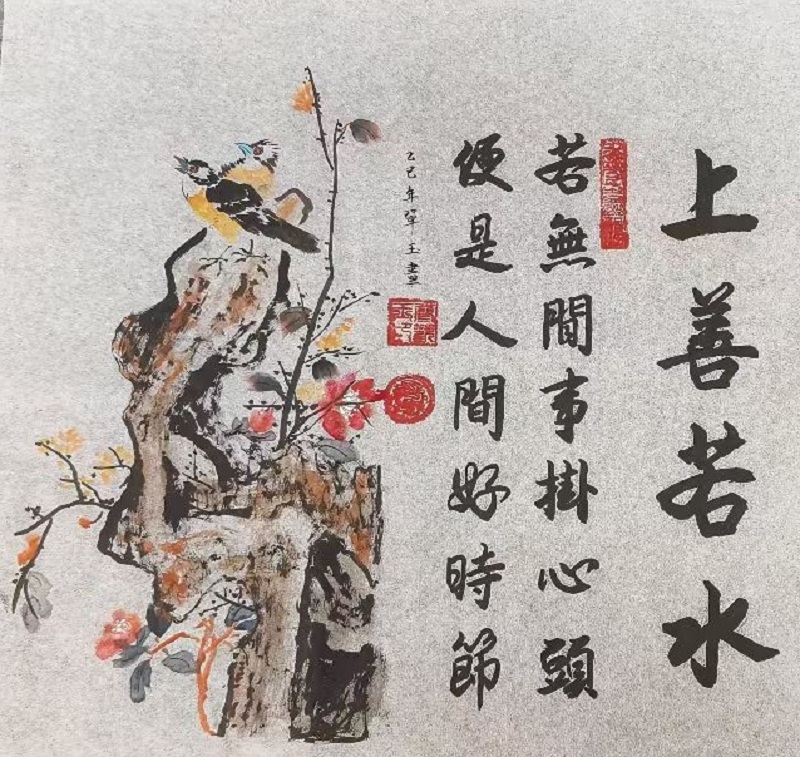 上善若水
若無閒事掛心頭
便是人間好時節
乙巳年